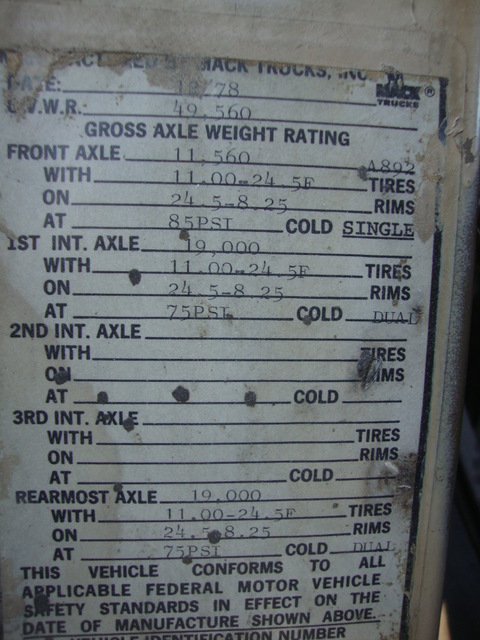 MACK TRUCKS, INC
DATE: /78
MACK ®
TRUCKS
G.V.W.R.: 49,560
GROSS AXLE WEIGHT RATING
FRONT AXLE 11,560 A892
WITH 11.00-24.5F TIRES
ON 24.5-8.25 RIMS
AT 85PSI COLD SINGLE
1ST INT. AXLE 19,000
WITH 11.00-24.5F TIRES
ON 24.5-8.25 RIMS
AT 75PSI COLD DUAL
2ND INT. AXLE
WITH TIRES
ON RIMS
AT COLD
3RD INT. AXLE
WITH TIRES
ON RIMS
AT COLD
REARMOST AXLE 19,000
WITH 11.00-24.5F TIRES
ON 24.5-8.25 RIMS
AT 75PSI COLD DUAL
THIS VEHICLE CONFORMS TO ALL
APPLICABLE FEDERAL MOTOR VEHICLE
SAFETY STANDARDS IN EFFECT ON THE
DATE OF MANUFACTURE SHOWN ABOVE.
VEHICLE IDENTIFICATION NUMBER